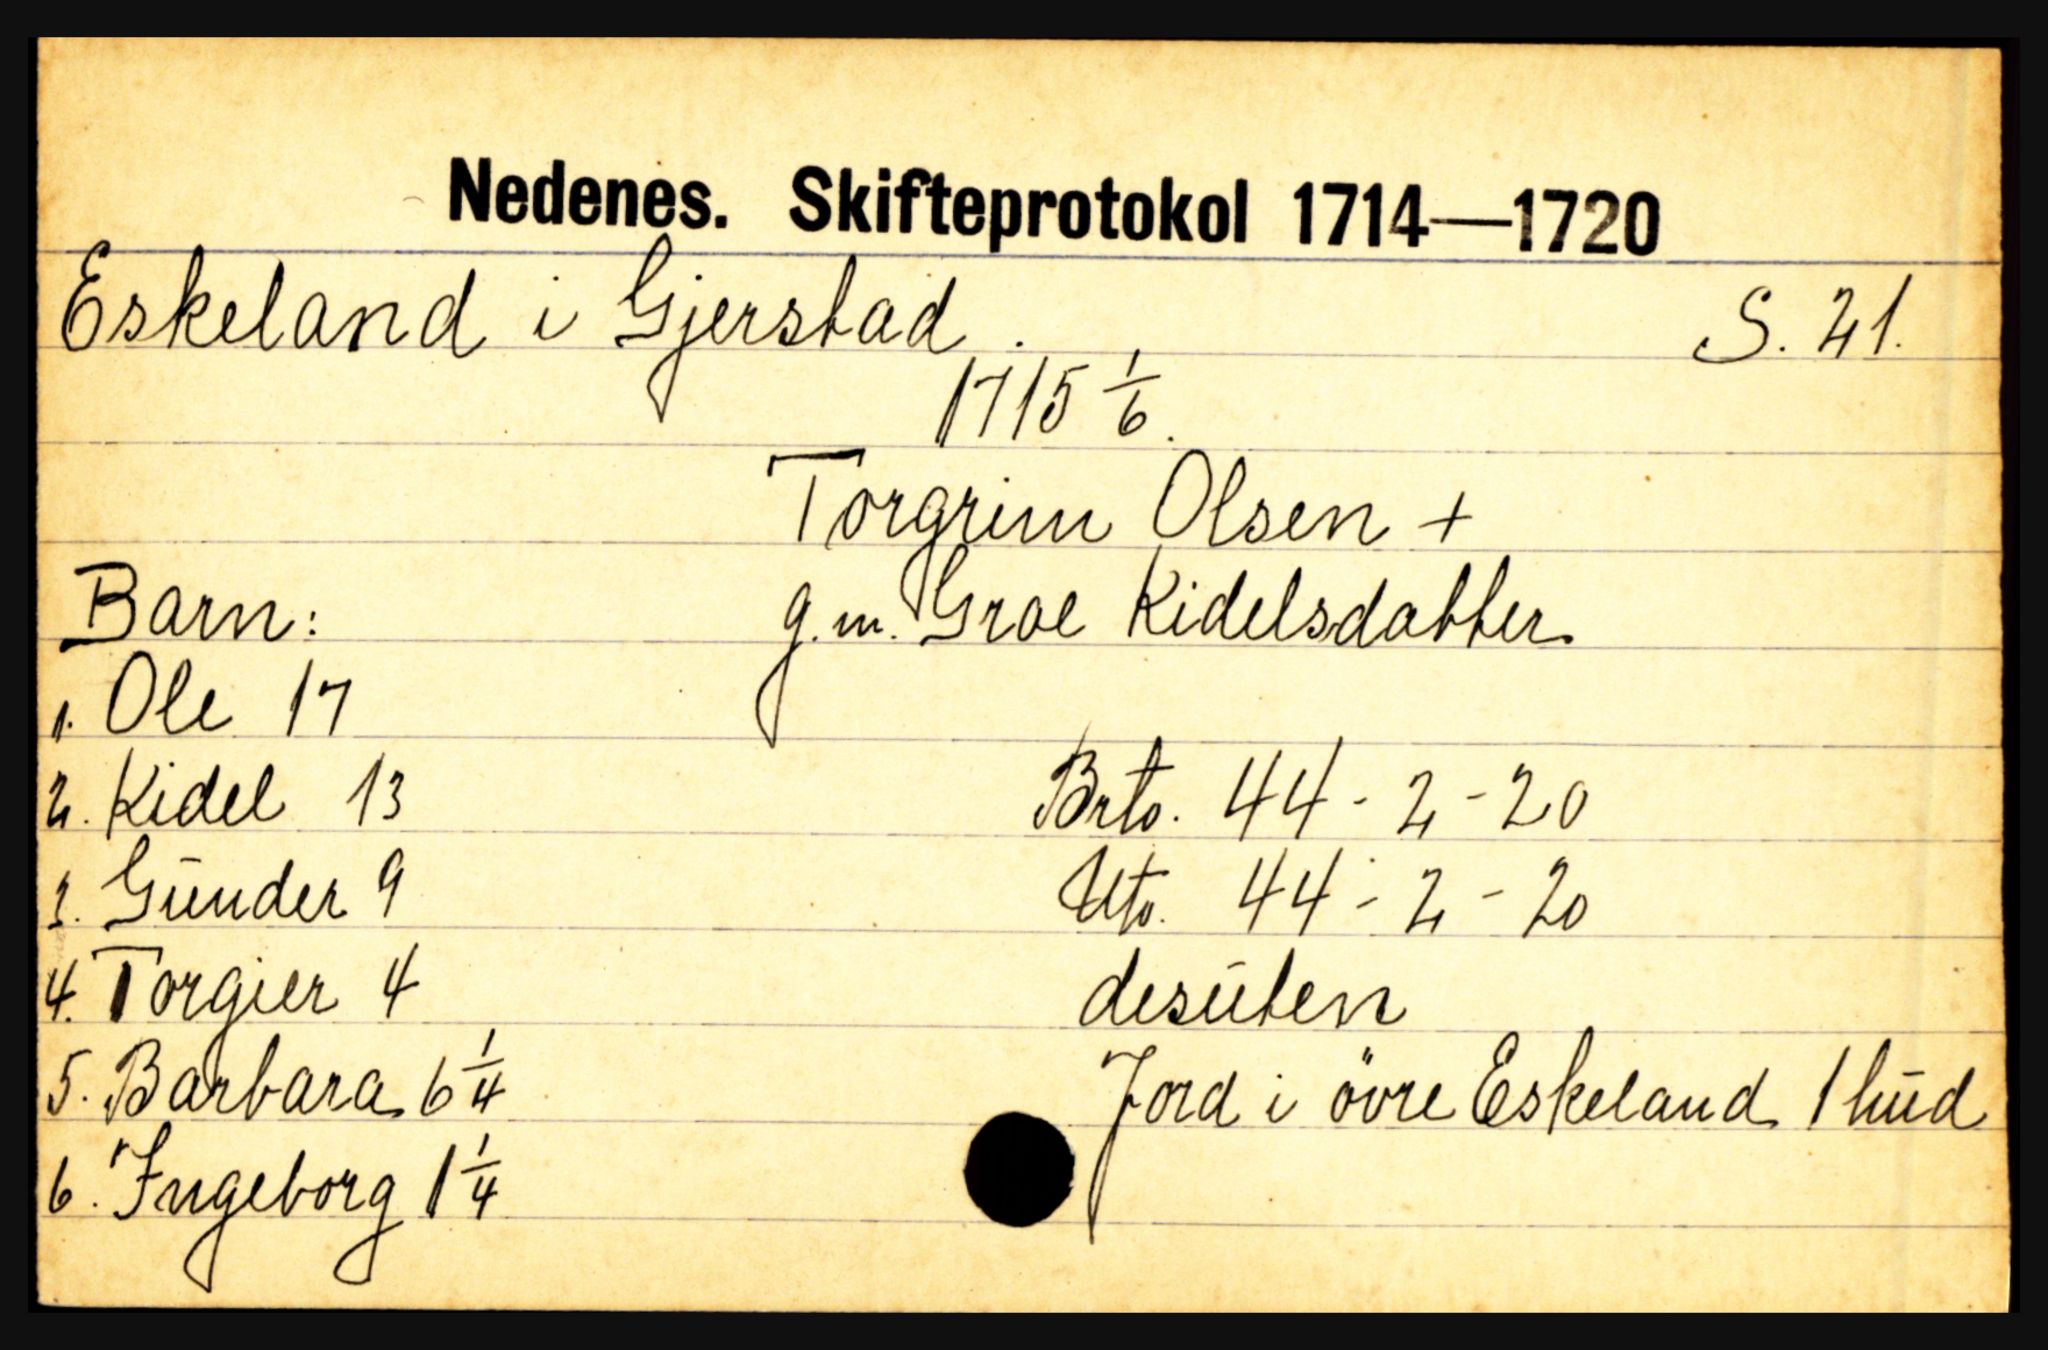 Nedenes. Skifteprotokol 1714—1720
Eskeland i Gjerstad. S. 21.
1715 1/6.
Torgrim Olsen +
Barn: g.m. Groe Kidelsdatter
1. Ole 17
2. Kidel 13 Brto. 44 - 2 - 20
3. Gunder 9 Nto. 44 - 2 - 20
4. Torgier 4 desuten
5. Barbara 6 1/4 Jord i övre Eskeland 1 hud
6. Ingeborg 1 1/4